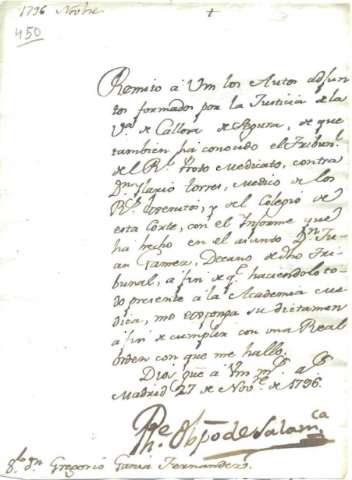 1796 Novbre
+
450
Remito à Vm los Autos adjun
tos formados por la Justicia de la
Va. de Callosa de Segura, de que
tambien ha conocido el Tribunl.
del Rl. Proto Medicato, contra
Dn. Ylario Torres, Medico de los
Rs. Exercitos, y del Colegio de
esta Corte, con el Informe que
ha hecho en el asunto Dn. Ju
an Gamez, Decano de dho Tri
bunal, a fin de qe. haciendolo to
do presente à la Academia me
dica, me exponga su dictamen
a fin de cumplir con una Real
orden con que me hallo.
Dios gue a Vm ms. as.
Madrid 27 de Nove. de 1796.
Phe. Obpo de Salamca
Sor. Dn. Gregorio Garcia Fernandez.